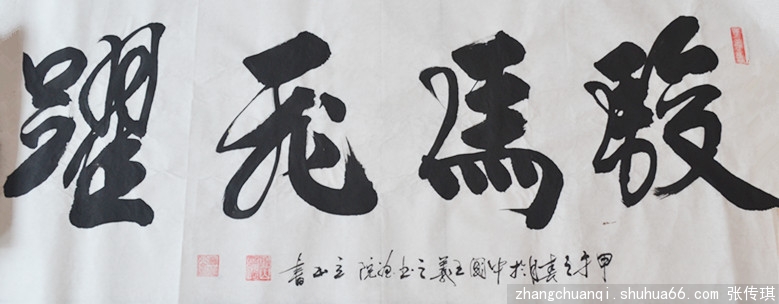 駿馬飛躍
甲午之春月於中國王羲之書法院立山書
zhangchuanqi.shuhua66.com 张传琪